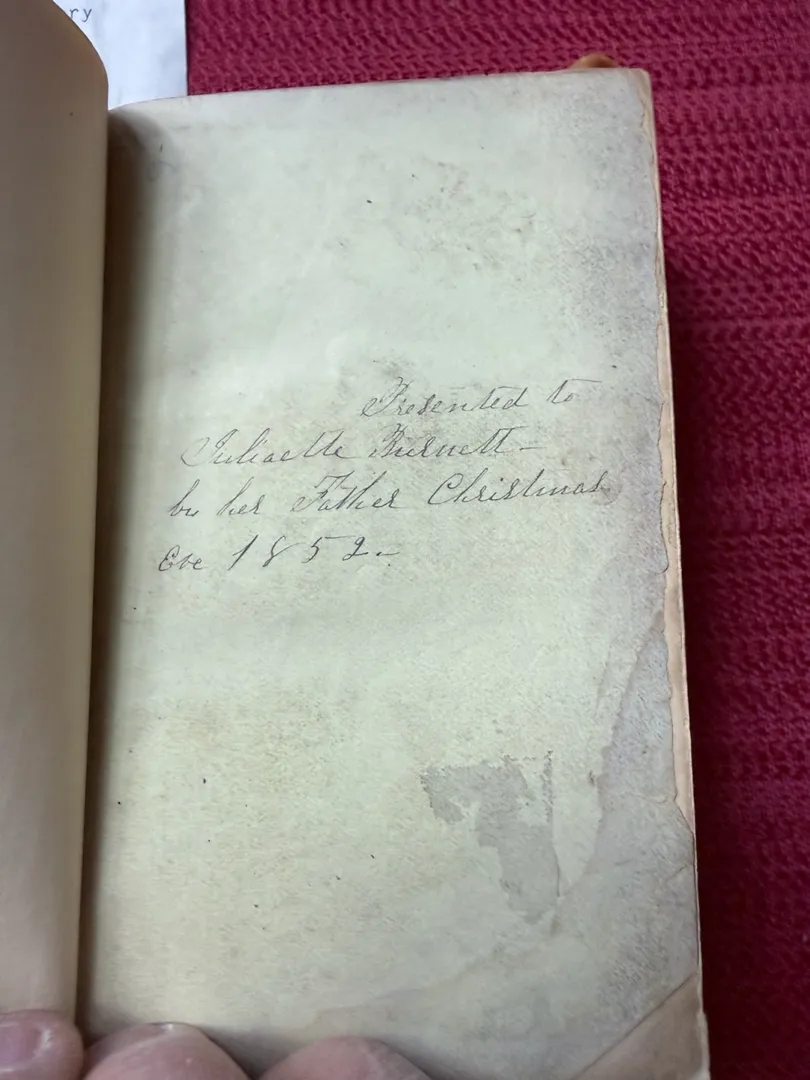 ry
Presented to
Juliaette Burnett -
by her Father Christmas
Eve 1852.-